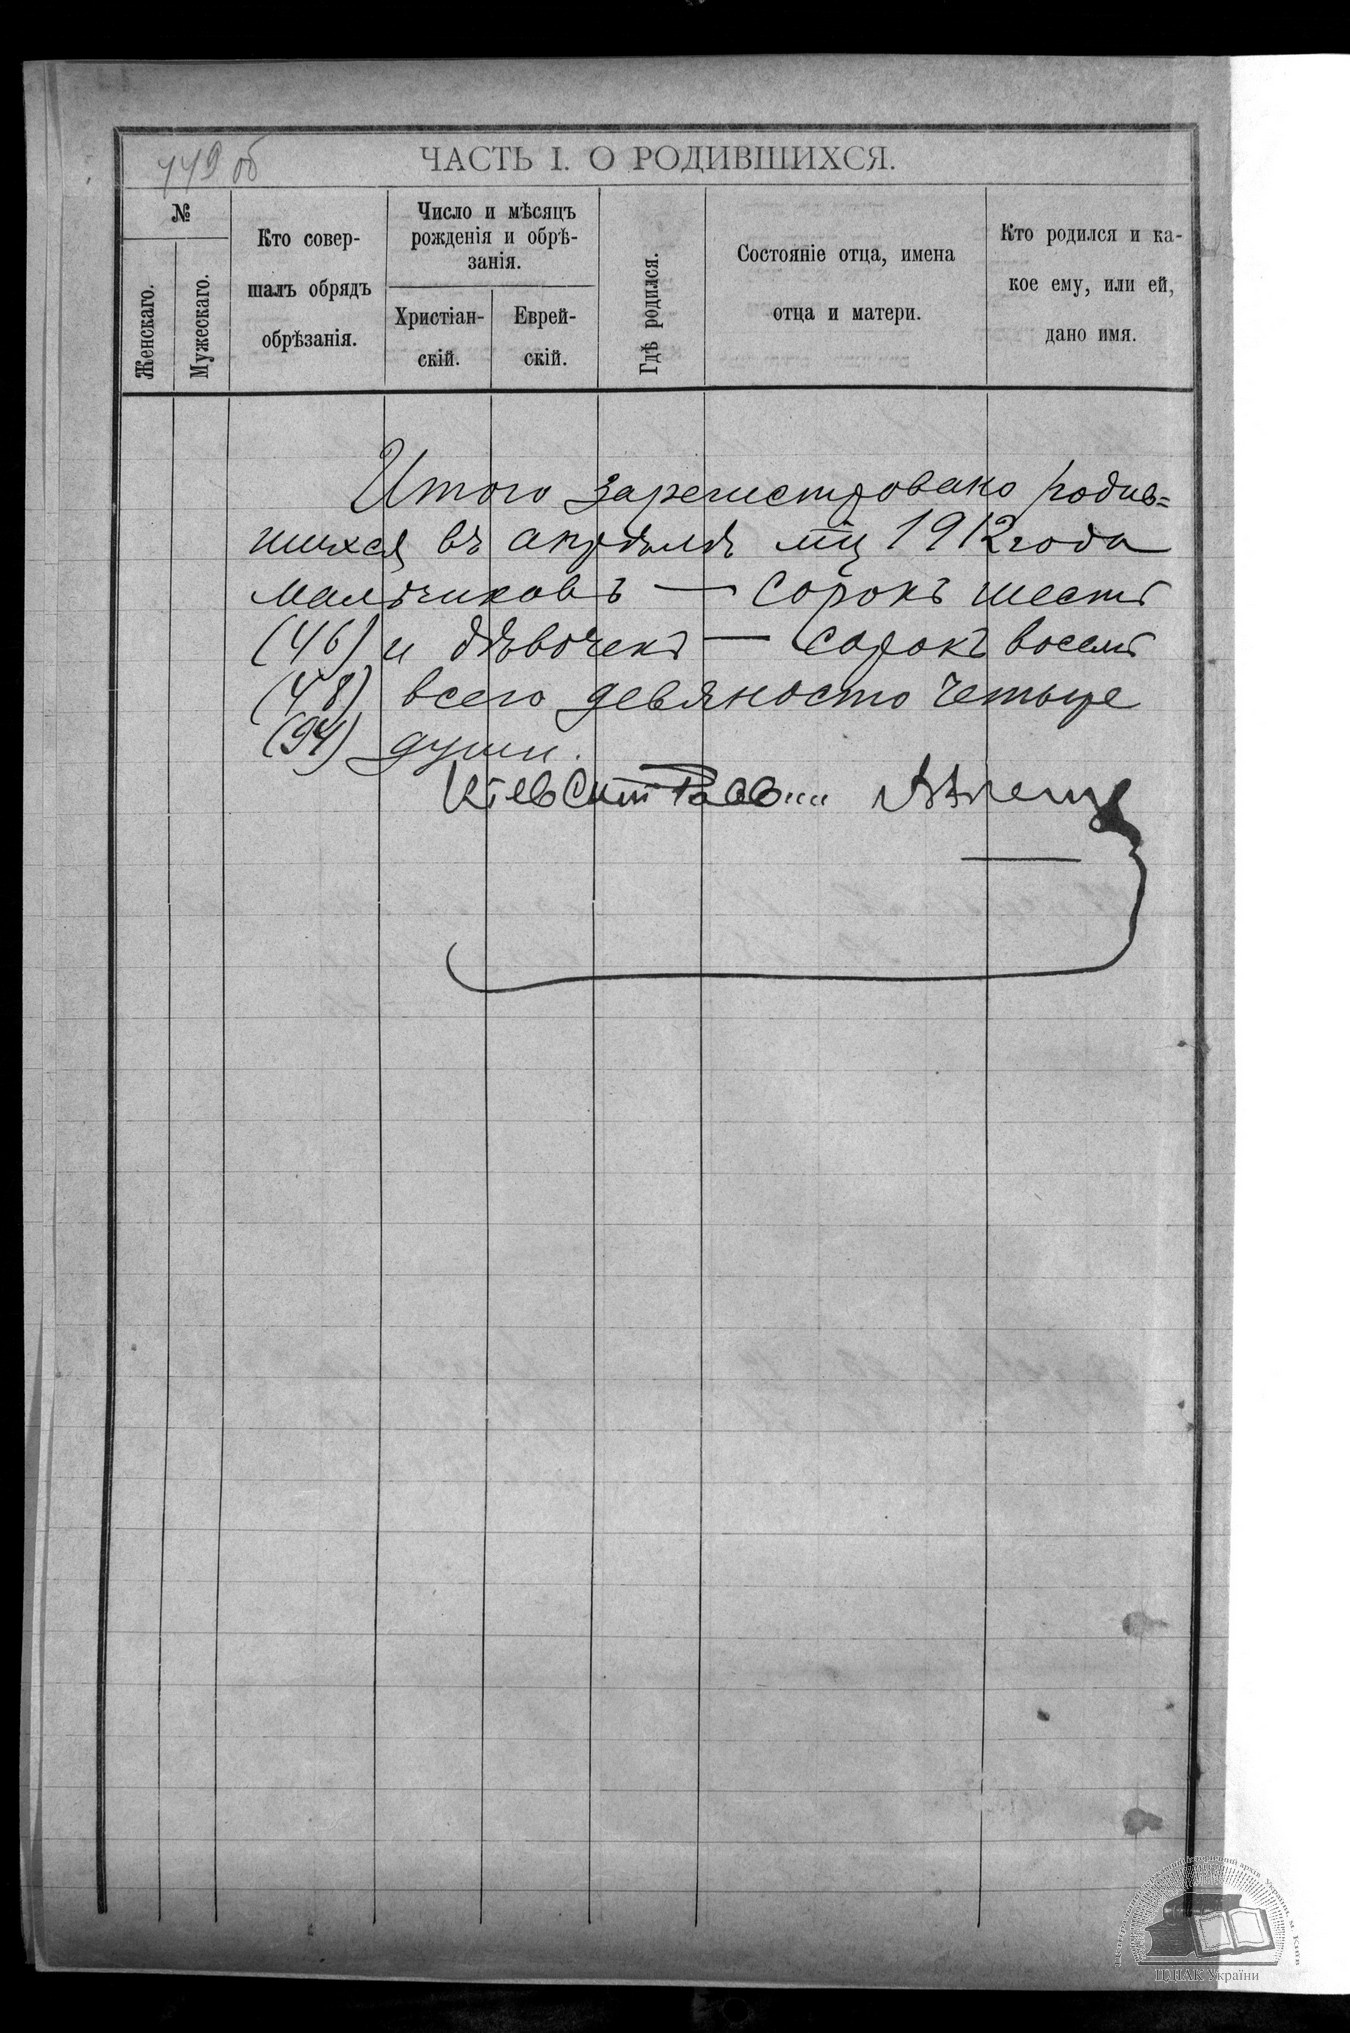 449 об
ЧАСТЬ I. О РОДИВШИХСЯ.
№
Женскаго.
Мужескаго.
Кто совер-
шалъ обрядъ
обрѣзанія.
Число и мѣсяцъ
рожденія и обрѣ-
занія.
Христіан-
скій.
Еврей-
скій.
Гдѣ родился.
Состояніе отца, имена
отца и матери.
Кто родился и ка-
кое ему, или ей,
дано имя.
Итого зарегистровано родив=
шихся въ апрѣлѣ мц 1912 года
мальчиковъ — сорокъ шесть
(46) и дѣвочекъ — сорокъ восемь
(48) всего девяносто четыре
(94) души.
Кіевскій Раввин
ЦДІАК України